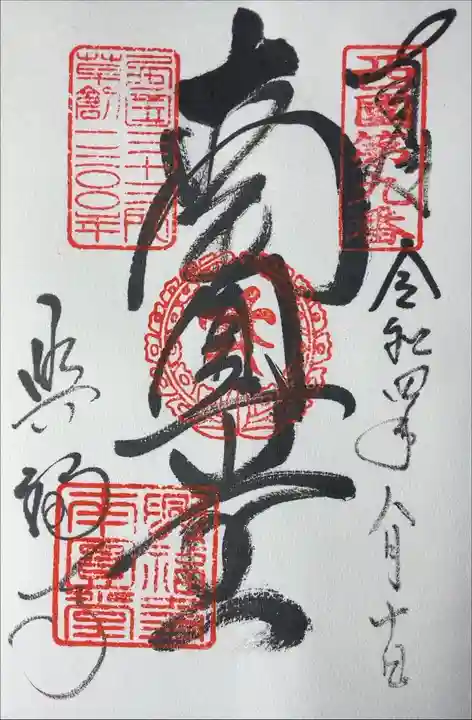 奉拝
西國第九番
令和四年八月十日
南円堂
西国三十三所
草創一三〇〇年
興福寺
興福寺
南圓堂